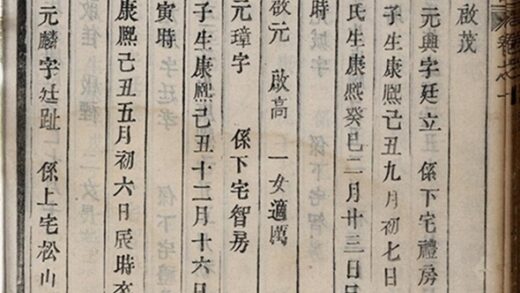 卷之十
啟茂
元興字廷立 係下宅禮房
子生康熙己丑九月初七日
氏生康熙癸巳二月廿三日
時
啟元 啟高 一女適萬
元璋字 係下宅智房
子生康熙己丑十二月十六日
寅時
康熙己丑五月初六日辰時
元麟字廷趾 係上宅松山